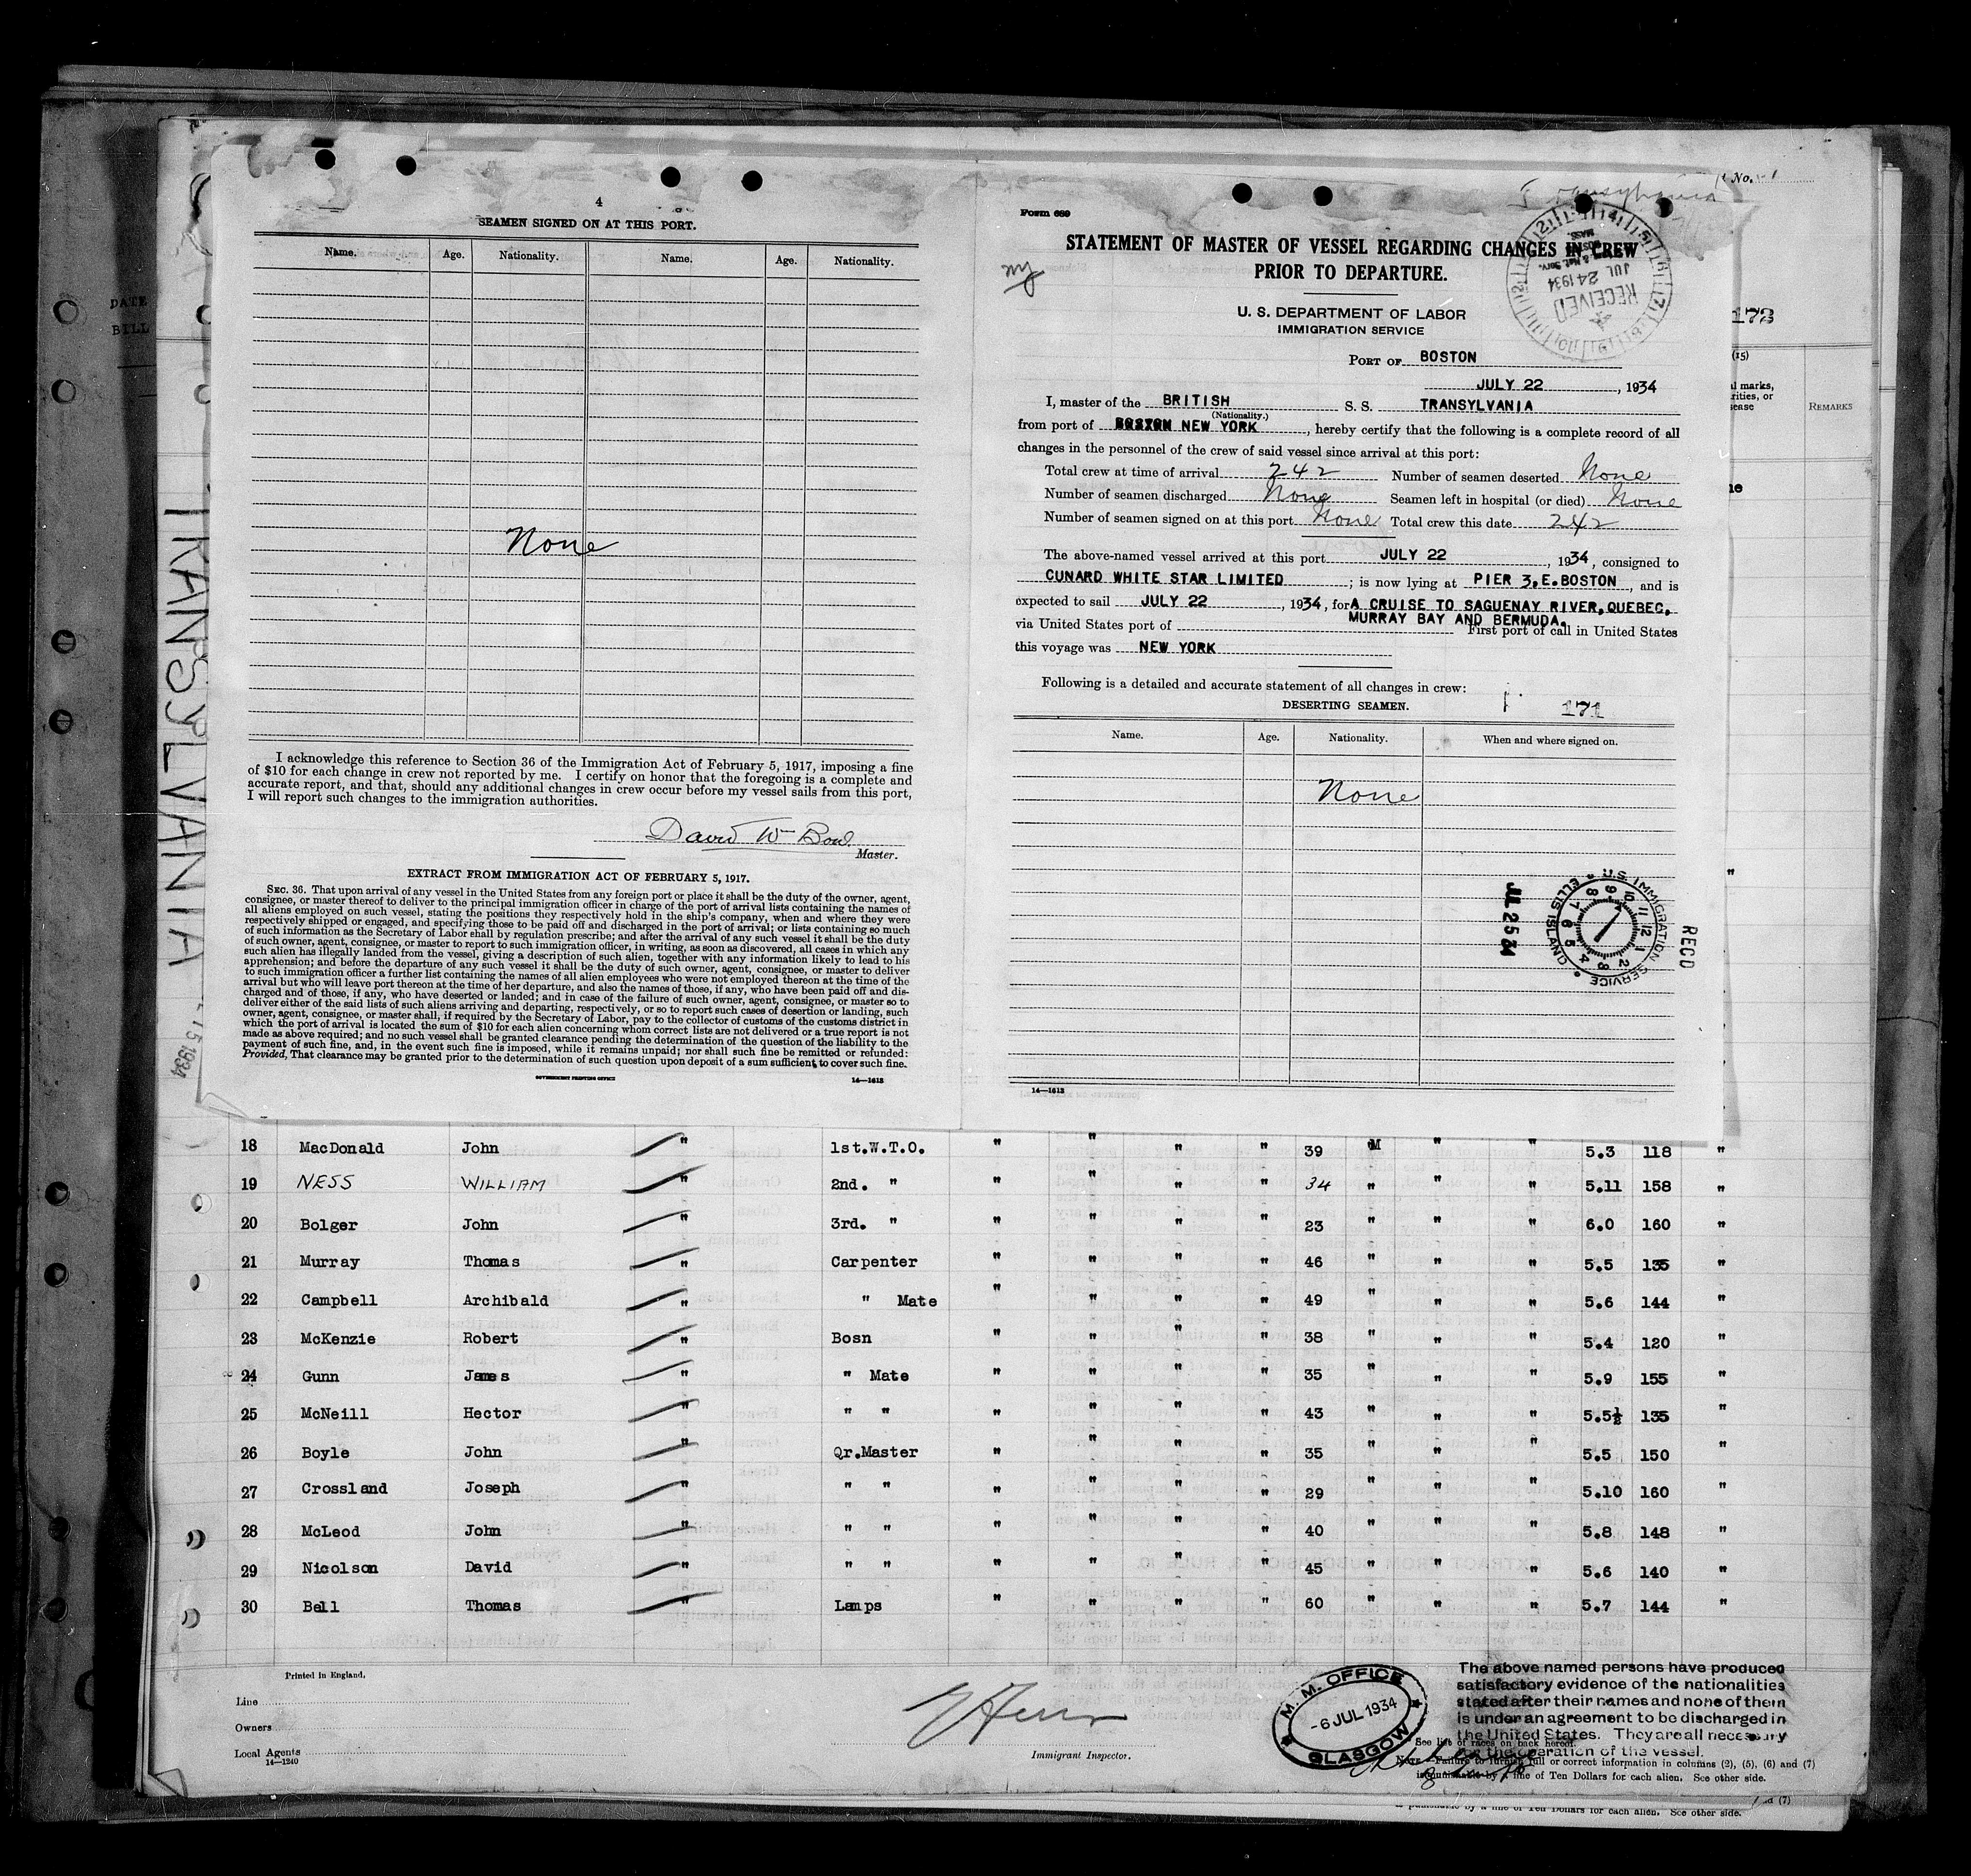 DATE
BILL
TRANSYLVANIA
15 1934
4
SEAMEN SIGNED ON AT THIS PORT.
Name. Age. Nationality. Name. Age. Nationality.
None
I acknowledge this reference to Section 36 of the Immigration Act of February 5, 1917, imposing a fine
of $10 for each change in crew not reported by me. I certify on honor that the foregoing is a complete and
accurate report, and that, should any additional changes in crew occur before my vessel sails from this port,
I will report such changes to the immigration authorities.
David Wm Bone
Master.
EXTRACT FROM IMMIGRATION ACT OF FEBRUARY 5, 1917.
SEC. 36. That upon arrival of any vessel in the United States from any foreign port or place it shall be the duty of the owner, agent,
consignee, or master thereof to deliver to the principal immigration officer in charge of the port of arrival lists containing the names of
all aliens employed on such vessel, stating the positions they respectively hold in the ship's company, when and where they were
respectively shipped or engaged, and specifying those to be paid off and discharged in the port of arrival; or lists containing so much
of such information as the Secretary of Labor shall by regulation prescribe; and after the arrival of any such vessel it shall be the duty
of such owner, agent, consignee, or master to report to such immigration officer, in writing, as soon as discovered, all cases in which any
such alien has illegally landed from the vessel, giving a description of such alien, together with any information likely to lead to his
apprehension; and before the departure of any such vessel it shall be the duty of such owner, agent, consignee, or master to deliver
to such immigration officer a further list containing the names of all alien employees who were not employed thereon at the time of the
arrival but who will leave port thereon at the time of her departure, and also the names of those, if any, who have been paid off and dis-
charged and of those, if any, who have deserted or landed; and in case of the failure of such owner, agent, consignee, or master so to
deliver either of the said lists of such aliens arriving and departing, respectively, or so to report such cases of desertion or landing, such
owner, agent, consignee, or master shall, if required by the Secretary of Labor, pay to the collector of customs of the customs district in
which the port of arrival is located the sum of $10 for each alien concerning whom correct lists are not delivered or a true report is not
made as above required; and no such vessel shall be granted clearance pending the determination of the question of the liability to the
payment of such fine, and, in the event such fine is imposed, while it remains unpaid; nor shall such fine be remitted or refunded:
Provided, That clearance may be granted prior to the determination of such question upon deposit of a sum sufficient to cover such fine.
GOVERNMENT PRINTING OFFICE 14—1613
Transylvania
No.
Form 689
STATEMENT OF MASTER OF VESSEL REGARDING CHANGES IN CREW
PRIOR TO DEPARTURE.
ny
RECEIVED
JUL 24 1934
BOSTON
MASS.
U. S. DEPARTMENT OF LABOR
IMMIGRATION SERVICE
PORT OF BOSTON
JULY 22, 1934
I, master of the BRITISH S. S. TRANSYLVANIA
(Nationality.)
from port of BOSTON NEW YORK, hereby certify that the following is a complete record of all
changes in the personnel of the crew of said vessel since arrival at this port:
Total crew at time of arrival 242 Number of seamen deserted None
Number of seamen discharged None Seamen left in hospital (or died) None
Number of seamen signed on at this port None Total crew this date 242
The above-named vessel arrived at this port JULY 22, 1934, consigned to
CUNARD WHITE STAR LIMITED; is now lying at PIER 3, E. BOSTON, and is
expected to sail JULY 22, 1934, for A CRUISE TO SAGUENAY RIVER, QUEBEC,
MURRAY BAY AND BERMUDA.
via United States port of First port of call in United States
this voyage was NEW YORK
Following is a detailed and accurate statement of all changes in crew:
DESERTING SEAMEN. 171
Name. Age. Nationality. When and where signed on.
None
U.S. IMMIGRATION SERVICE ELLIS ISLAND
RECD
JUL 25 34
14—1613
172
(15)
marks,
or
REMARKS
18 MacDonald John " 1st.W.T.O. " " " " 39 M " " 5.3 118 "
19 NESS WILLIAM " 2nd. " " " " " 34 " " " 5.11 158 "
20 Bolger John " 3rd. " " " " " 23 " " " 6.0 160 "
21 Murray Thomas " Carpenter " " " " 46 " " " 5.5 135 "
22 Campbell Archibald " " Mate " " " " 49 " " " 5.6 144 "
23 McKenzie Robert " Bosn " " " " 38 " " " 5.4 120 "
24 Gunn James " " Mate " " " " 35 " " " 5.9 155 "
25 McNeill Hector " " " " " " " 43 " " " 5.5½ 135 "
26 Boyle John " Qr.Master " " " " 35 " " " 5.5 150 "
27 Crossland Joseph " " " " " " " 29 " " " 5.10 160 "
28 McLeod John " " " " " " " 40 " " " 5.8 148 "
29 Nicolson David " " " " " " " 45 " " " 5.6 140 "
30 Bell Thomas " Lamps " " " " 60 " " " 5.7 144 "
Printed in England.
Line
Owners
Local Agents
14—1240
Immigrant Inspector.
M. M. OFFICE
-6 JUL 1934
GLASGOW
The above named persons have produced
satisfactory evidence of the nationalities
stated after their names and none of them
is under an agreement to be discharged in
the United States. They are all necessary
for the operation of the vessel.
See list of races on back hereof.
NOTE.—Failure to furnish full or correct information in columns (2), (5), (6) and (7)
is punishable by a fine of Ten Dollars for each alien. See other side.
and (7)
is punishable by a fine of Ten Dollars for each alien. See other side.